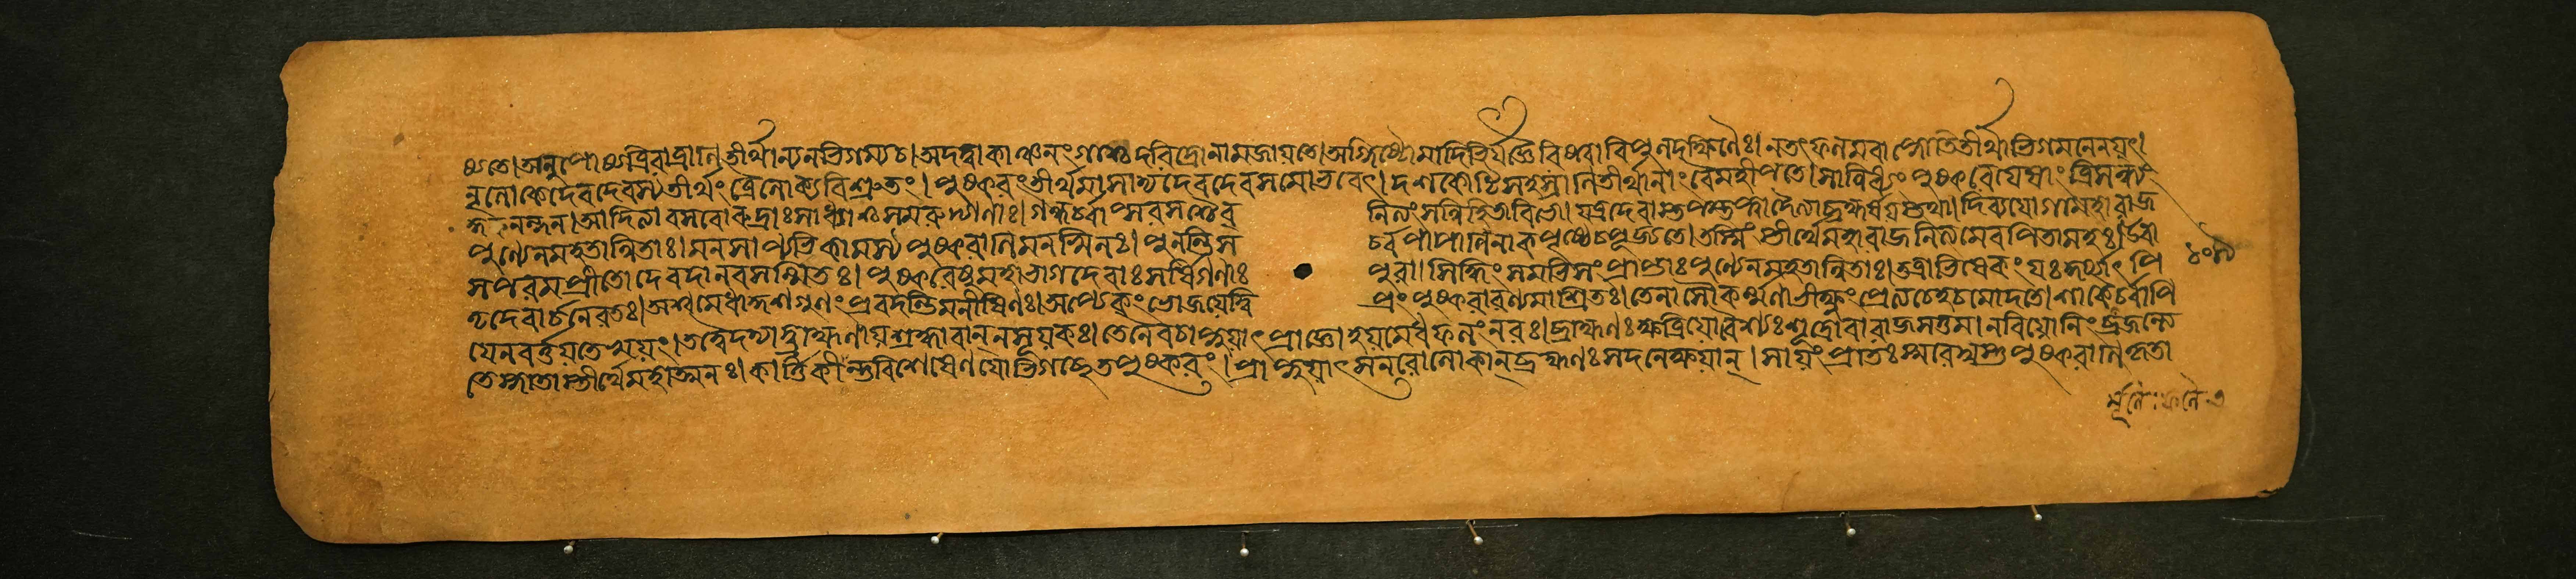 ষ্যতে। অনুপোষ্য ত্রিরাত্রাণি তীর্থান্যনভিগম্য চ। অদত্ত্বা কাঞ্চনং গাশ্চ দরিদ্রো নাম জায়তে। অগ্নিষ্টোমাদিভির্যজ্ঞৈরিষ্ট্বা বিপুলদক্ষিণৈঃ। ন তৎ ফলমবাপ্নোতি তীর্থাভিগমনেন যৎ।
নৃলোকে দেবদেবস্য তীর্থং ত্রৈলোক্যবিশ্রুতং। পুষ্করং তীর্থমাসাদ্য দেবদেবসমো ভবেৎ। দশকোটিসহস্রাণি তীর্থানাং বৈ মহীপতে। সান্নিধ্যং পুষ্করে যেষাং ত্রিসন্ধ্যং
কুরুনন্দন। আদিত্যা বসবো রুদ্রাঃ সাধ্যাশ্চ সমরুদ্গণাঃ। গন্ধর্বাপ্সরসশ্চৈব নিত্যং সন্নিহিতা বিভো। যত্র দেবাস্তপস্তপ্ত্বা দৈত্যা ব্রহ্মর্ষয়স্তথা। দিব্যযোগা মহারাজ
পুণ্যেন মহতান্বিতাঃ। মনসাপ্যভিকামস্য পুষ্করাণি মনস্বিনঃ। পুনন্তি স র্বপাপানি নাকপৃষ্ঠে চ পূজ্যতে। তস্মিংস্তীর্থে মহারাজ নিত্যমেব পিতামহঃ। উবা
স পরমপ্রীতো দেবদানবসম্মতঃ। পুষ্করেষু মহাভাগ দেবাঃ সর্ষিগণাঃ পুরা। সিদ্ধিং সমভিসংপ্রাপ্তাঃ পুণ্যেন মহতান্বিতাঃ। তত্রাভিষেকং যঃ কুর্য্যাৎ পি
তৃদেবার্চনে রতঃ। অশ্বমেধাদ্দশগুণং প্রবদন্তি মনীষিণঃ। অপ্যেকং ভোজয়েদ্বি প্রং পুষ্করারণ্যমাশ্রিতঃ। তেনাসৌ কর্ম্মণা ভীষ্ম প্রেত্য চেহ চ মোদতে। শাকৈ র্বাপি
যেন বর্ত্তয়তে স্বয়ং। তদ্বৈ দদ্যাদ্ব্রাহ্মণায় শ্রদ্ধাবাননসূয়কঃ। তেনৈব প্রাপ্নুয়াৎ প্রাজ্ঞো হয়মেধফলং নরঃ। ব্রাহ্মণঃ ক্ষত্রিয়ো বৈশ্যঃ শূদ্রো বা রাজসত্তম। ন বিয়োনিং ব্রজন্ত্যে
তে স্নাতাস্তীর্থে মহাত্মনঃ। কার্ত্তিকীন্তু বিশেষেণ যোভিগচ্ছেত পুষ্করং। প্রাপ্নুয়াৎ স নরো লোকান্ ব্রহ্মণঃ সদনেক্ষয়ান্। সায়ং প্রাতঃ স্মরেদ্যস্তু পুষ্করাণি কৃতা